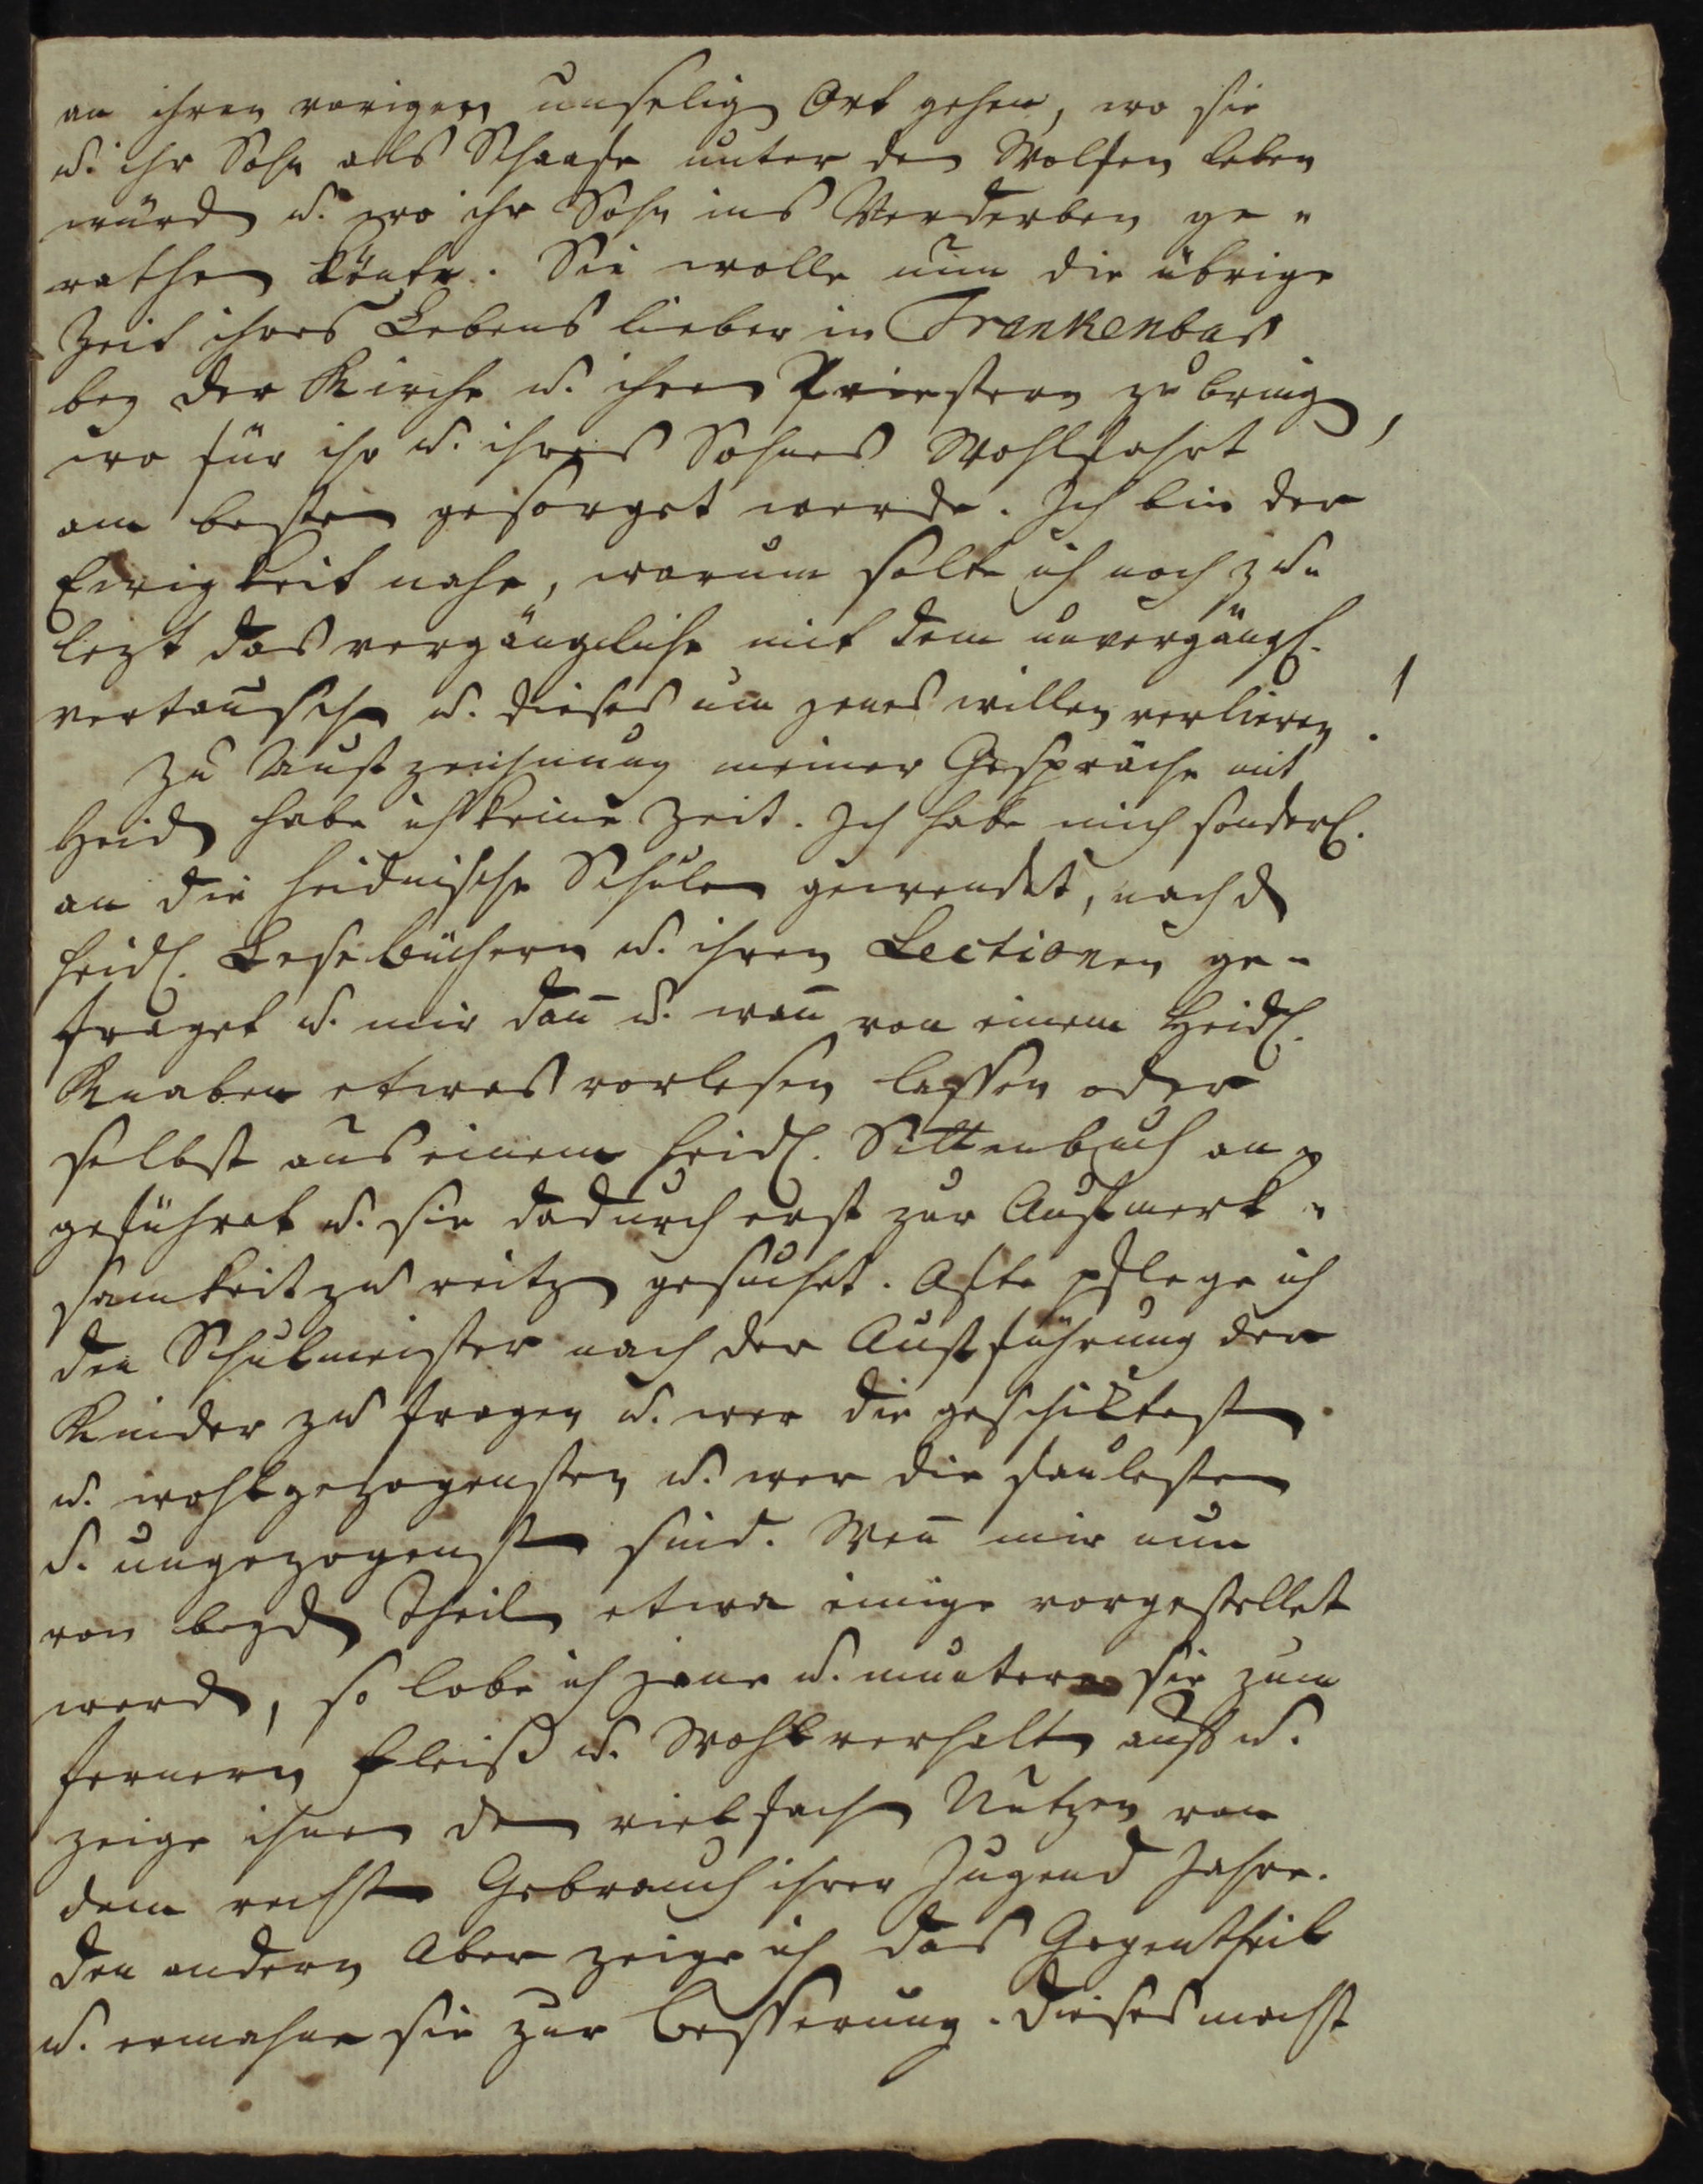 an ihren vorigen unselig Ort gehen, wo sie
u. ihr Sohn als Schaafe unter den Wolfen leben
würd u. wo ihr Sohn ins Verderben ge-
rathen könte. Sie wolle nun die übrige
Zeit ihres Lebens lieber in Trankenbar
bey der Kirche u. ihren Priestern zubring,
wo für ihr u. ihres Sohnes Wohlfahrt
am besten gesorget werde. Ich bin der
Ewigkeit nahe, warum solte ich noch zu-
lezt das vergängliche mit dem unvergängl.
vertauschen u. dieses um jenes willen verlieren!
Zu Aufzeichnung meiner Gespräche mit
Heiden habe ich keine Zeit. Ich habe mich sonderl.
an die heidnische Schulen gewendet, nach d
heidl. Lesebüchern u. ihren Lectionen ge-
fraget u. mir dan̄ u. wan̄ von einem Heidl.
Knaben etwas vorlesen lassen oder
selbst aus einem heidl. Sittenbuch an-
geführet u. sie dadurch erst zur Aufmerk-
samkeit zu reitzen gesuchet. Ofte pflege ich
den Schulmeister nach der Aufführung der
Kinder zu fragen u. wer die geschiktesten
u. wohlgezogensten u. wer die faulesten
u. ungezogensten sind. Wen̄ mir nun
von beyden Theilen etwa einige vorgestellet
werden, so lobe ich jene u. muntere sie zum
fernern Fleiß u. Wohlverhalten auf u.
zeige ihnen den vielfachen Nutzen von
dem rechten Gebrauch ihrer Jugend Jahre.
Den andern aber zeige ich das Gegentheil
u. ermahne sie zur Besserung. Dieses macht